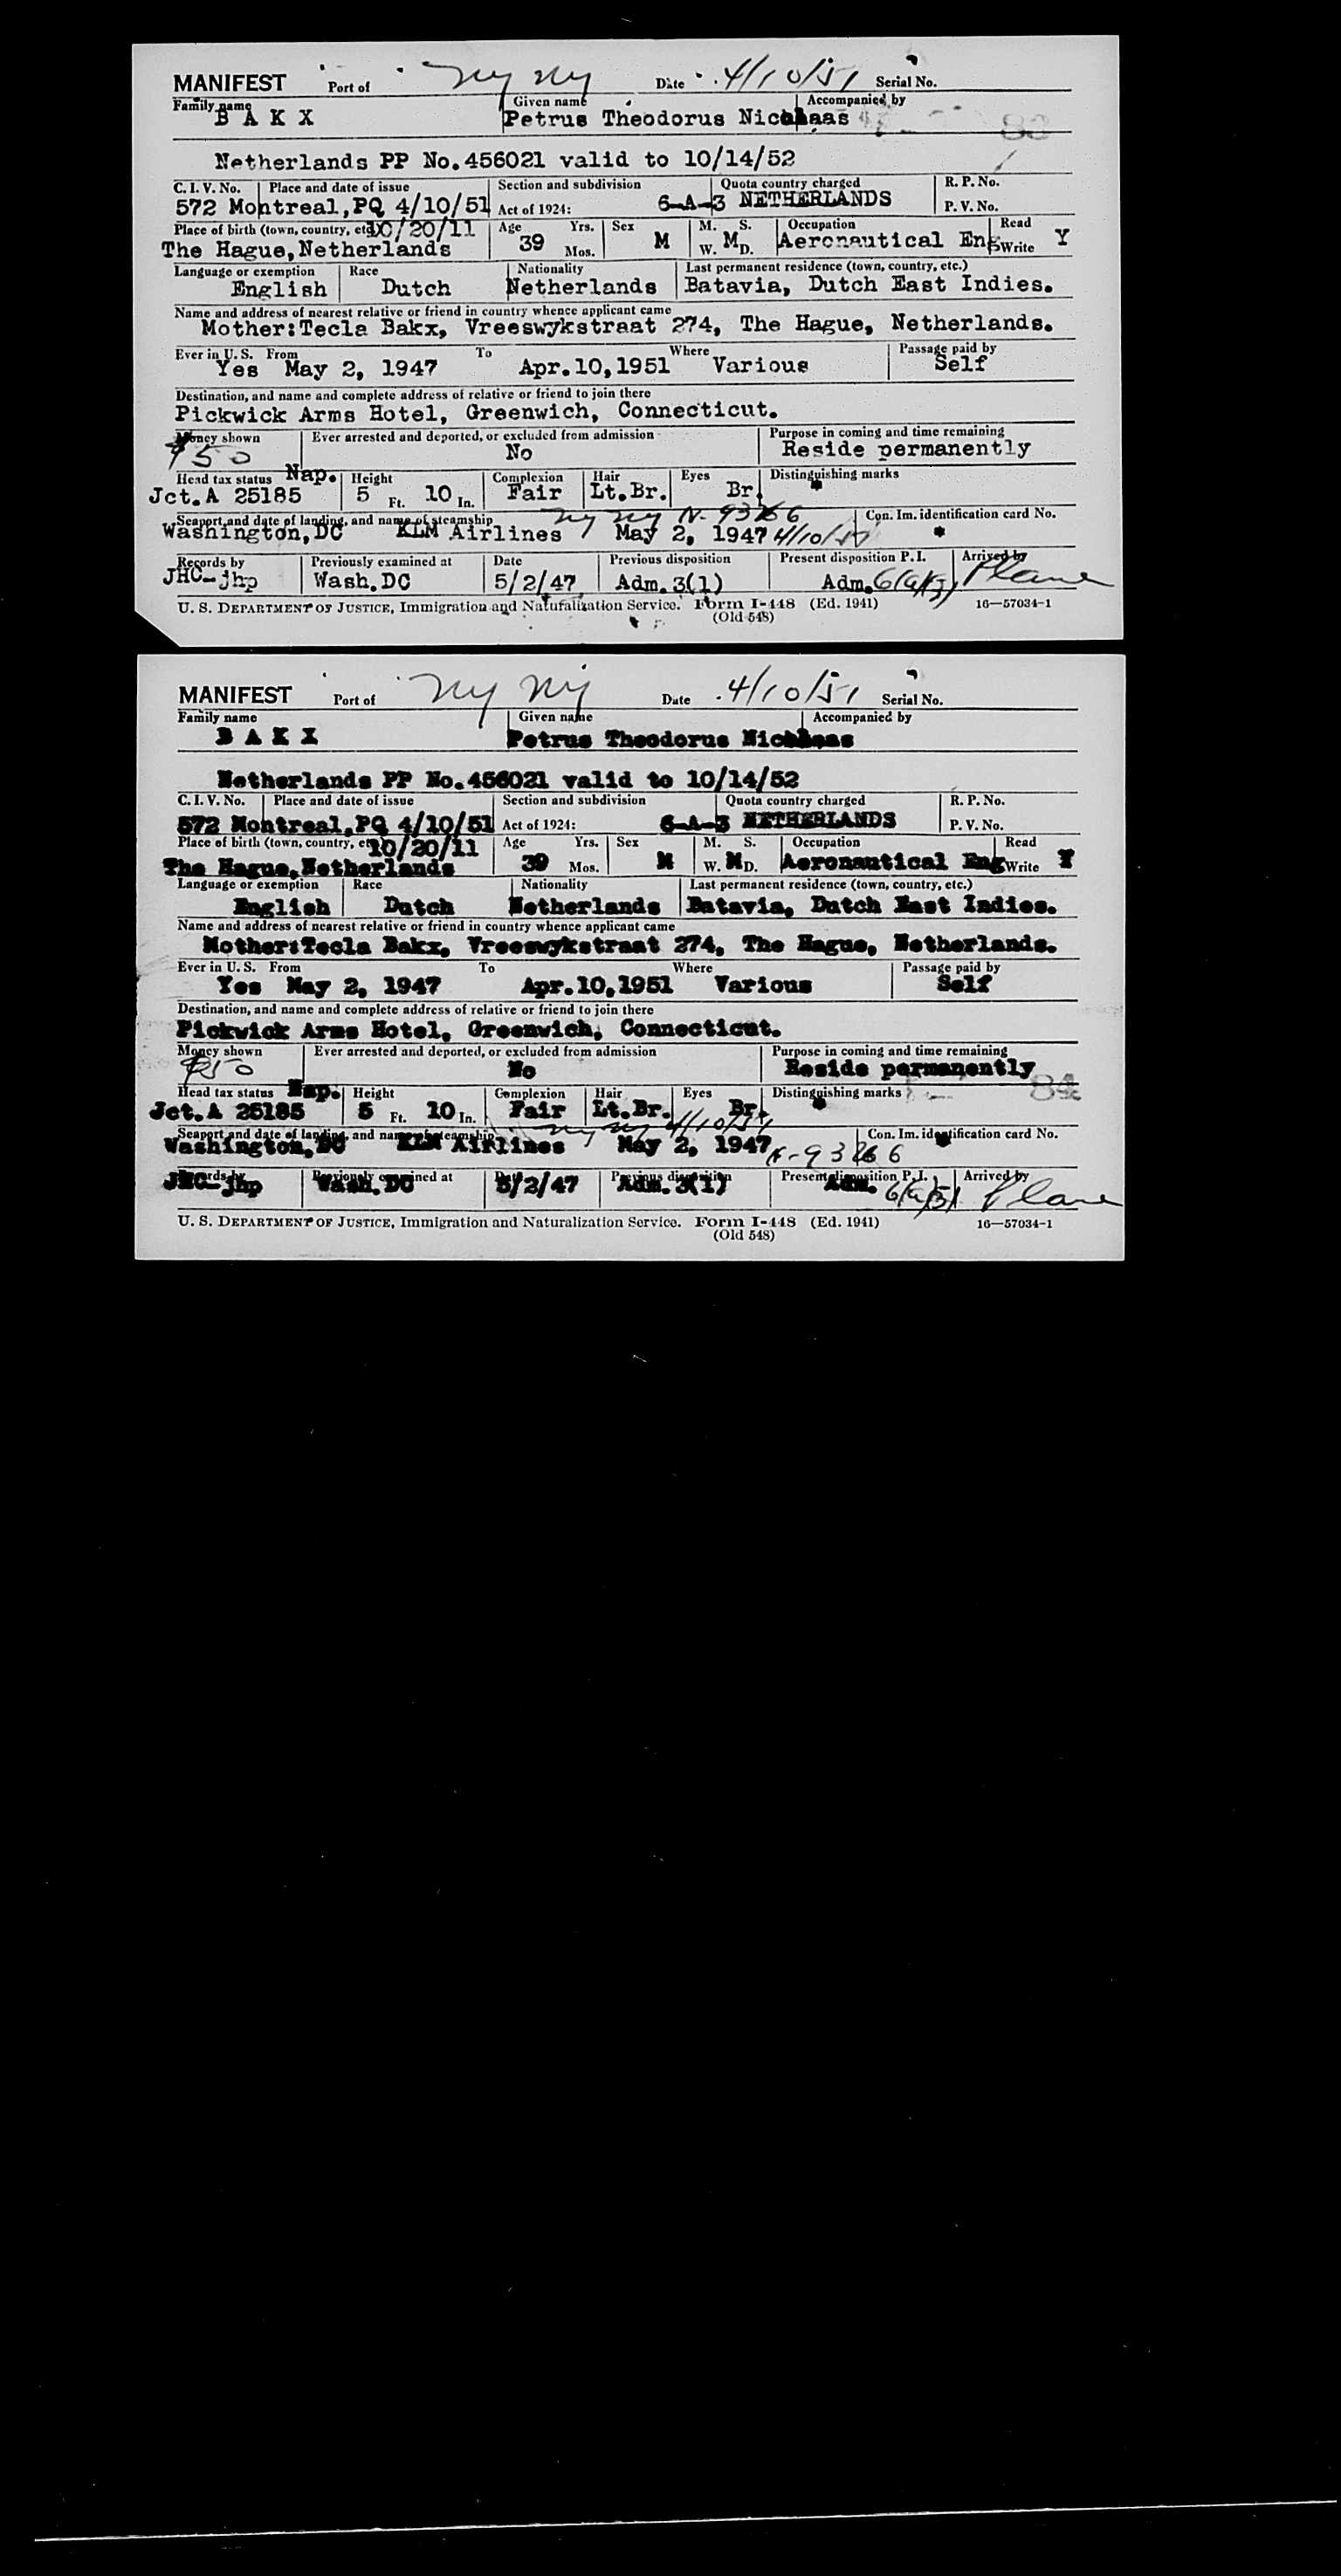 MANIFEST Port of NY NY Date 4/10/51 Serial No.
Family name Given name Accompanied by
B A K X Petrus Theodorus
83
Netherlands PP No.456021 valid to 10/14/52
C. I. V. No. Place and date of issue Section and subdivision Quota country charged R. P. No.
572 Montreal,PQ 4/10/51 Act of 1924: 6-A-3 NETHERLANDS P. V. No.
Place of birth (town, country, etc.) 10/20/11 Age Yrs. Sex M. S. Occupation Read
The Hague,Netherlands 39 Mos. M W. M D. Aeronautical Eng Write Y
Language or exemption Race Nationality Last permanent residence (town, country, etc.)
English Dutch Netherlands Batavia, Dutch East Indies.
Name and address of nearest relative or friend in country whence applicant came
Mother:Tecla Bakx, Vreeswykstraat 274, The Hague, Netherlands.
Ever in U. S. From To Where Passage paid by
Yes May 2, 1947 Apr.10,1951 Various Self
Destination, and name and complete address of relative or friend to join there
Pickwick Arms Hotel, Greenwich, Connecticut.
Money shown Ever arrested and deported, or excluded from admission Purpose in coming and time remaining
$50 No Reside permanently
Head tax status Nap. Height Complexion Hair Eyes Distinguishing marks
Jct.A 25185 5 Ft. 10 In. Fair Lt.Br. Br.
Seaport and date of landing, and name of steamship NY NY Con. Im. identification card No.
Washington,DC KLM Airlines May 2, 1947
Records by Previously examined at Date Previous disposition Present disposition P. I. Arrived by
JHC-jhp Wash.DC 5/2/47 Adm. 3(1) Adm. 6(a)(3) Plane
U. S. DEPARTMENT OF JUSTICE, Immigration and Naturalization Service. Form I-448 (Ed. 1941) 16—57034-1
(Old 548)
MANIFEST Port of NY NY Date 4/10/51 Serial No.
Family name Given name Accompanied by
B A K X Petrus Theodorus
Netherlands PP No.456021 valid to 10/14/52
C. I. V. No. Place and date of issue Section and subdivision Quota country charged R. P. No.
572 Montreal,PQ 4/10/51 Act of 1924: 6-A-3 NETHERLANDS P. V. No.
Place of birth (town, country, etc.) 10/20/11 Age Yrs. Sex M. S. Occupation Read
The Hague,Netherlands 39 Mos. M W. M D. Aeronautical Eng Write Y
Language or exemption Race Nationality Last permanent residence (town, country, etc.)
English Dutch Netherlands Batavia, Dutch East Indies.
Name and address of nearest relative or friend in country whence applicant came
Mother:Tecla Bakx, Vreeswykstraat 274, The Hague, Netherlands.
Ever in U. S. From To Where Passage paid by
Yes May 2, 1947 Apr.10,1951 Various Self
Destination, and name and complete address of relative or friend to join there
Pickwick Arms Hotel, Greenwich, Connecticut.
Money shown Ever arrested and deported, or excluded from admission Purpose in coming and time remaining
$50 No Reside permanently
Head tax status Nap. Height Complexion Hair Eyes Distinguishing marks 84
Jct.A 25185 5 Ft. 10 In. Fair Lt.Br. Br.
Seaport and date of landing, and name of steamship NY NY 4/10/51 Con. Im. identification card No.
Washington,DC KLM Airlines May 2, 1947
Records by Previously examined at Date Previous disposition Present disposition P. I. Arrived by
JHC-jhp Wash.DC 5/2/47 Adm. 3(1) Adm. 6(a)(3) Plane
U. S. DEPARTMENT OF JUSTICE, Immigration and Naturalization Service. Form I-448 (Ed. 1941) 16—57034-1
(Old 548)